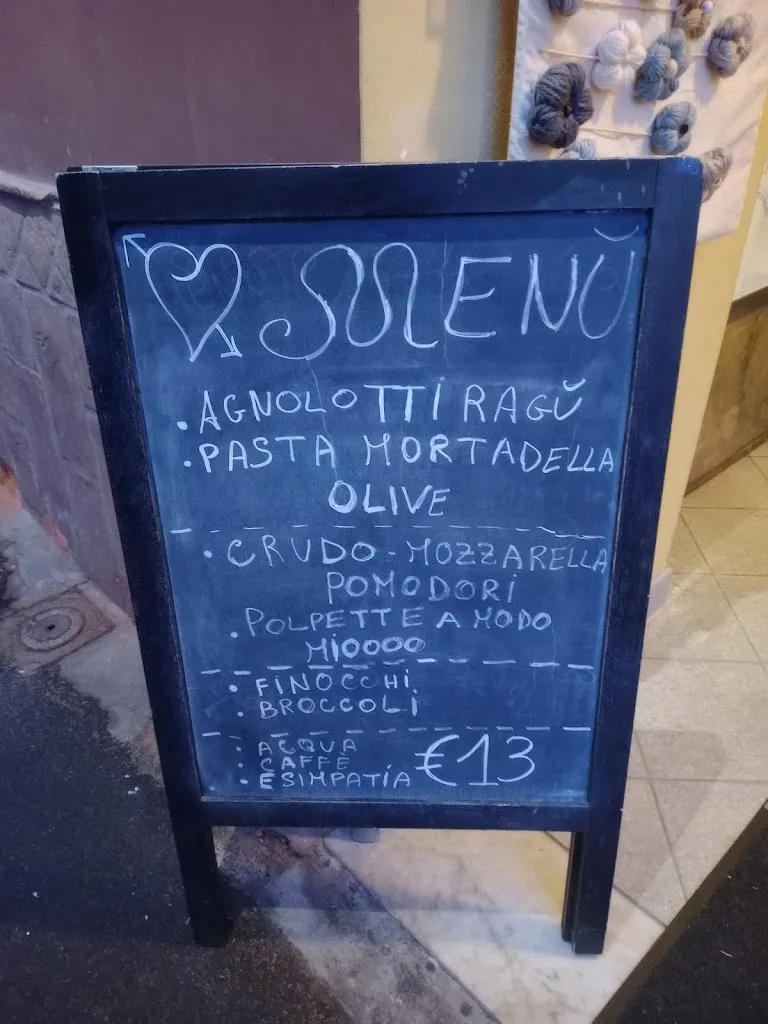 MENŬ
. AGNOLOTTI RAGŬ
. PASTA MORTADELLA
OLIVE
. CRUDO-MOZZARELLA
POMODORI
. POLPETTE A MODO
MIOOOO
. FINOCCHI
. BROCCOLI
. ACQUA
. CAFFÈ
. E SIMPATIA
€13